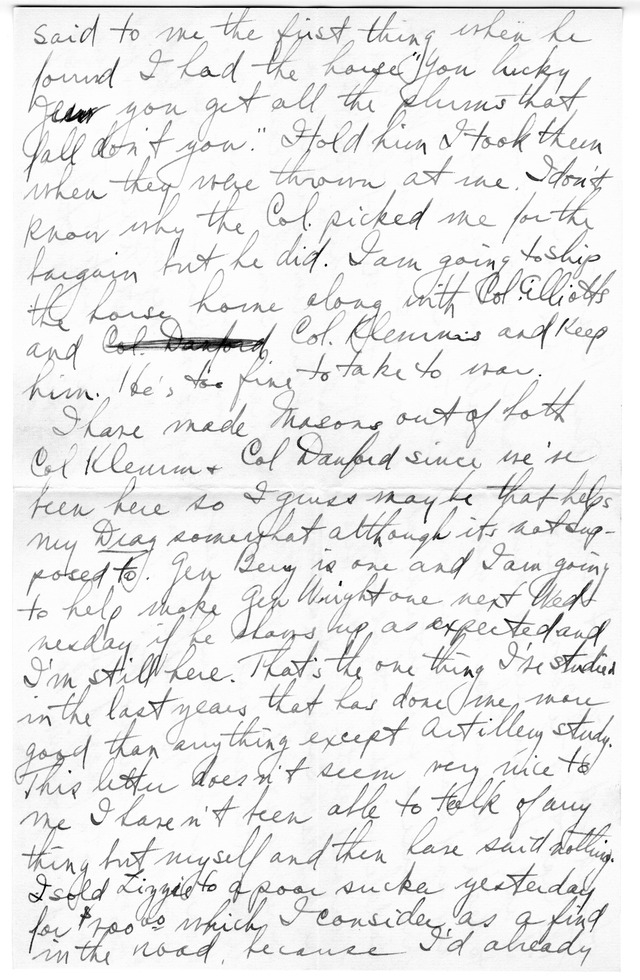 said to me the first thing when he
found I had the horse "You lucky
Jew you get all the plums that
fall don't you." I told him I took them
when they were thrown at me. I don't
know why the Col. picked me for the
bargain but he did. I am going to ship
the horse home along with Col. Elliotts
and Col. Danford Col. Klemms and keep
him. He's too fine to take to war.
I have made Masons out of both
Col Klemm & Col Danford since we've
been here so I guess maybe that helps
my Drag somewhat although its not sup-
posed to. Gen Berry is one and I am going
to help make Gen Wright one next Wed-
nesday if he shows up as expected and
I'm still here. That's the one thing I've studied
in the last years that has done me more
good than anything except Artillery study.
This letter doesn't seem very nice to
me I haven't been able to talk of any
thing but myself and then have said nothing.
I sold Lizzie to a poor sucker yesterday
for $200 00 which I consider as a find
in the road, because I'd already